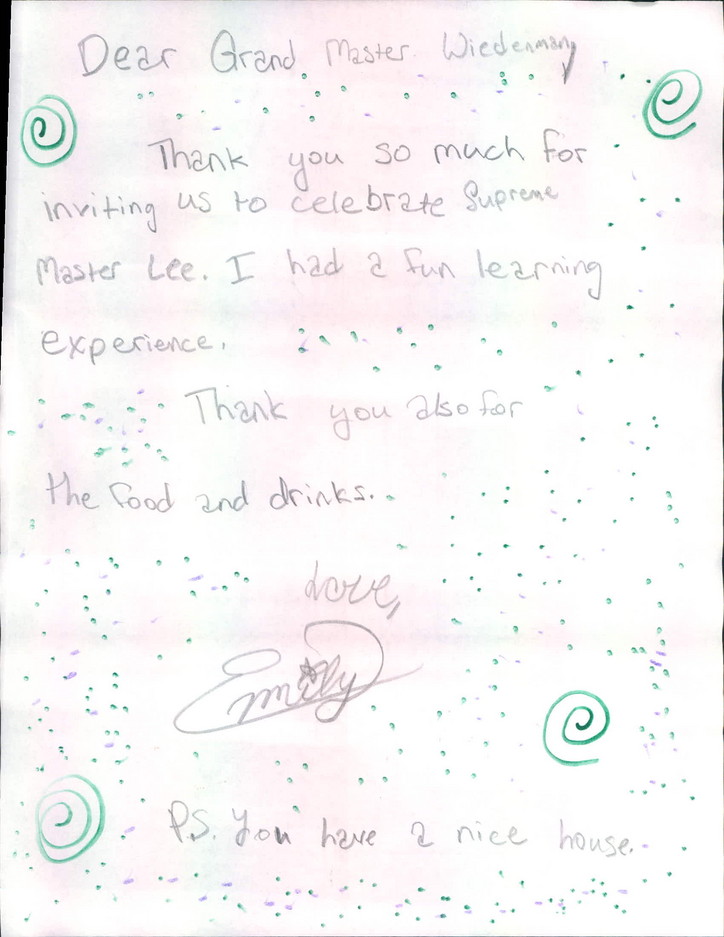 Dear Grand Master Wiedenmann,
Thank you so much for
inviting us to celebrate Supreme
Master Lee. I had a fun learning
experience.
Thank you also for
the food and drinks.
Love,
Emily
P.S. You have a nice house.